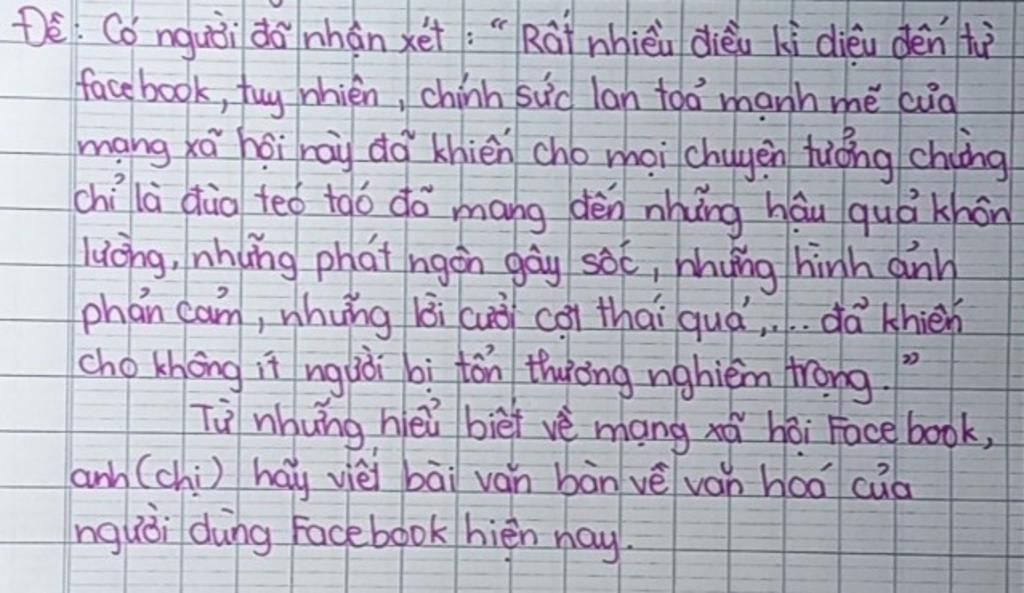 Đề: Có người đã nhận xét: "Rất nhiều điều kì diệu đến từ
facebook, tuy nhiên, chính sức lan toả mạnh mẽ của
mạng xã hội này đã khiến cho mọi chuyện tưởng chừng
chỉ là đùa teó táó đã mang đến những hậu quả khôn
lường, những phát ngôn gây sốc, những hình ảnh
phản cảm, những lời cười cợt thái quá,... đã khiến
cho không ít người bị tổn thương nghiêm trọng."
Từ những hiểu biết về mạng xã hội Facebook,
anh (chị) hãy viết bài văn bàn về văn hoá của
người dùng Facebook hiện nay.